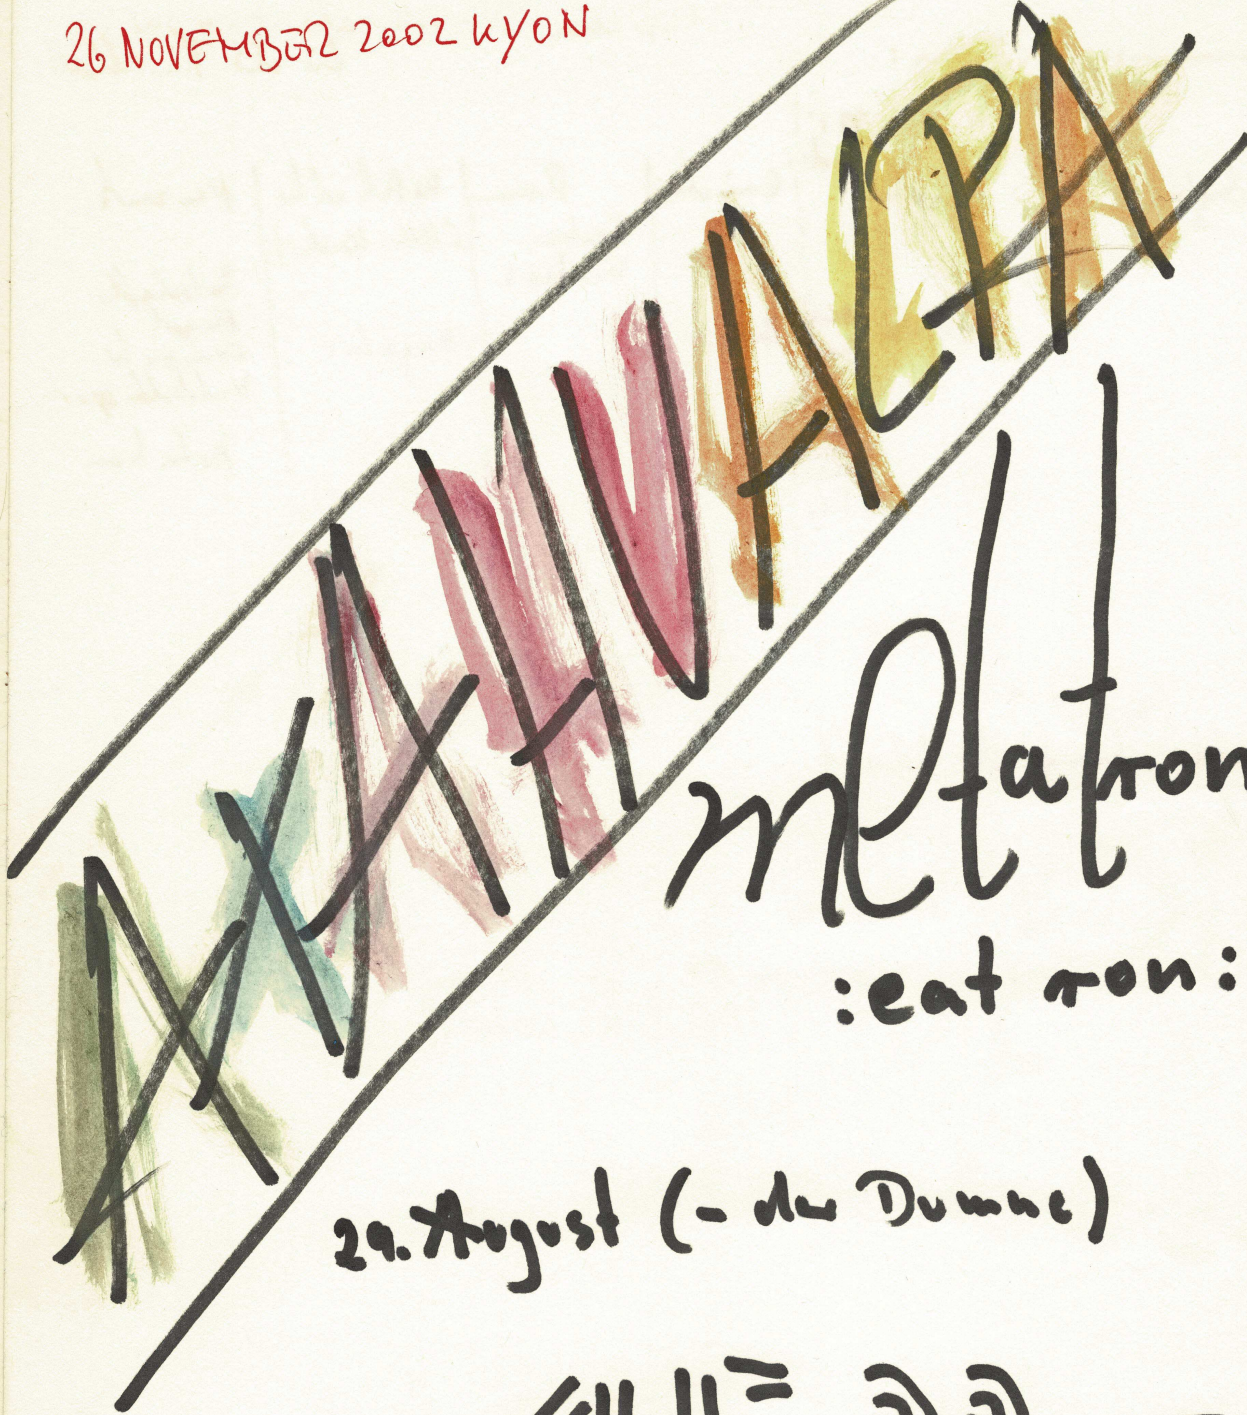 26 NOVEMBER 2002 KYON
AxAHUACPA
metatron
:eat ron:
29. August (- der Dumme)